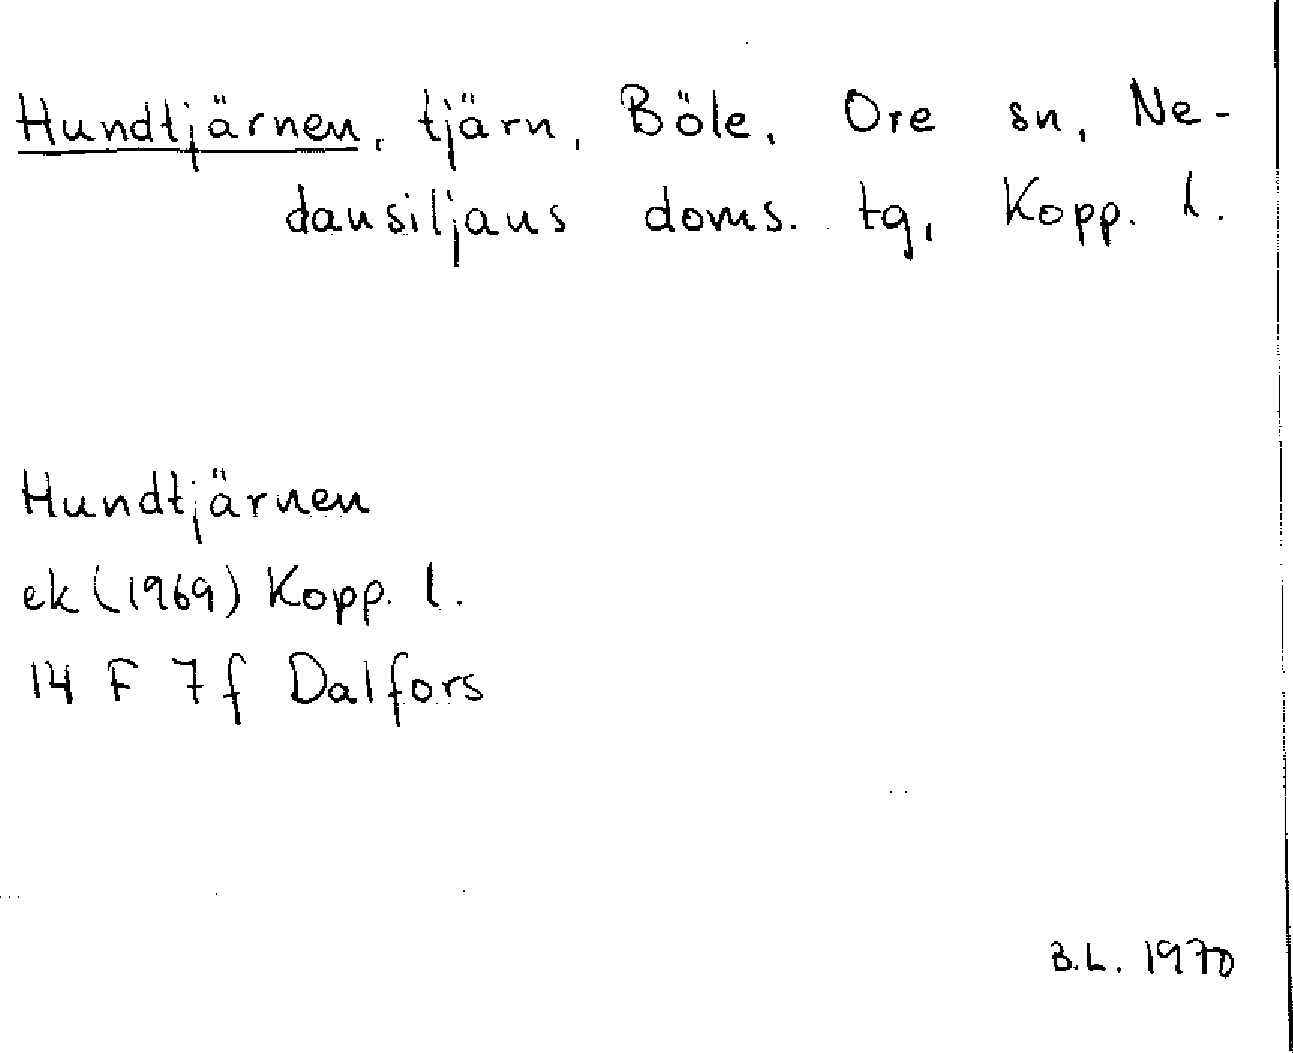 Hundtjärnen, tjärn, Böle, Ore sn, Ne-
dansiljans doms. tg, Kopp. l.
Hundtjärnen
ek (1969) Kopp. l.
14 F 7 f Dalfors
B.L. 1970